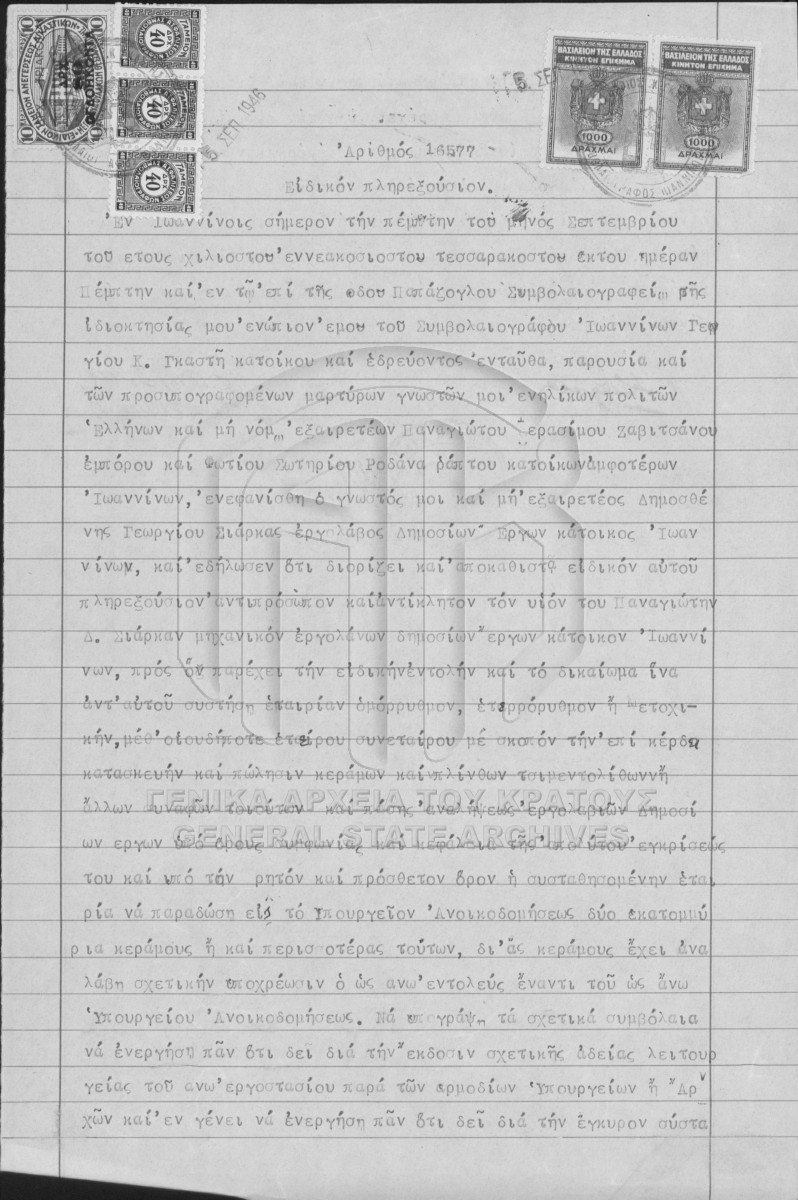 ΒΑΣΙΛΕΙΟΝ ΤΗΣ ΕΛΛΑΔΟΣ
ΚΙΝΗΤΟΝ ΕΠΙΣΗΜΑ
1000
ΔΡΑΧΜΑΙ
ΒΑΣΙΛΕΙΟΝ ΤΗΣ ΕΛΛΑΔΟΣ
ΚΙΝΗΤΟΝ ΕΠΙΣΗΜΑ
1000
ΔΡΑΧΜΑΙ
10 10
ΔΡΧ 40
ΔΡΧ 40
ΔΡΧ 40
5 ΣΕΠ 1946
5 ΣΕ
Ἀριθμός 16577-
Εἰδικόν πληρεξούσιον.
Ἐν Ἰωαννίνοις σήμερον τήν πέμπτην τοῦ μηνός Σεπτεμβρίου
τοῦ ετους χιλιοστου'εννεακοσιοστου τεσσαρακοστου εκτου ημέραν
Πέμπτην καί'εν τῷ'επί τῆς οδου Παπάζογλου Συμβολαιογραφείῳ τῆς
ἰδιοκτησίας μου'ενώπιον'εμου τοῦ Συμβολαιογράφου Ἰωαννίνων Γεω
γίου Κ. Γκαστῆ κατοίκου καί ἑδρεύοντος ἐνταῦθα, παρουσία καί
τῶν προσυπογραφομένων μαρτύρων γνωστῶν μοι'ενηλίκων πολιτῶν
Ἑλλήνων καί μή νόμῳ'εξαιρετέων Παναγιώτου Γερασίμου Ζαβιτσάνου
ἐμπόρου καί Φωτίου Σωτηρίου Ροδάνα ῥάπτου κατοίκωνἀμφοτέρων
Ἰωαννίνων,'ενεφανίσθη ὁ γνωστός μοι καί μή'εξαιρετέος Δημοσθέ
νης Γεωργίου Σιάρκας ἐργολάβος Δημοσίων Ἔργων κάτοικος Ἰωαν
νίνων, καί'εδήλωσεν ὅτι διορίζει καί'αποκαθιστᾶ εἰδικόν αὐτοῦ
πληρεξούσιον'αντιπρόσωπον καίἀντίκλητον τόν υἱόν του Παναγιώτην
Δ. Σιάρκαν μηχανικόν ἐργολάνων δημοσίων ἔργων κάτοικον Ἰωαννί
νων, πρός ὅν παρέχει τήν εἰδικήνἐντολήν καί τό δικαίωμα ἵνα
ἀντ'αὐτοῦ συστήσῃ ἑταιρίαν ὁμόρρυθμον, ἑτερρόρυθμον ἤ Μετοχι-
κήν,μεθ'οἱουδήποτε ἑταίρου συνεταίρου μέ σκοπόν τήν'επί κέρδει
κατασκευήν καί πώλησιν κεράμων καί πλίνθων τσιμεντολίθωνἤ
ἄλλων συναφῶν τοιούτων καί πάσης'αναλήψεως'εργολαβιῶν Δημοσί
ων εργων ὑπό ὅρους συμφωνίας καί κεφάλαια τῆς'απολύτου'εγκρίσεώς
του καί υπό τήν ρητόν καί πρόσθετον ὅρον ἡ συσταθησομένην ἑται
ρία νά παραδώση εἰς τό Ὑπουργεῖον Ἀνοικοδομήσεως δύο ἑκατομμύ
ρια κεράμους ἤ καί περισσοτέρας τούτων, δι'ἅς κεράμους ἔχει ἀνα
λάβη σχετικήν υποχρέωσιν ὁ ὡς ανω'εντολεύς ἔναντι τοῦ ὡς ἄνω
Ὑπουργείου Ἀνοικοδομήσεως. Νά υπογράψῃ τά σχετικά συμβόλαια
νά ἐνεργήση πᾶν ὅτι δεῖ διά τήν ἔκδοσιν σχετικῆς ἀδείας λειτουρ
γείας τοῦ ανω'εργοστασίου παρά τῶν αρμοδίων Ὑπουργείων ἤ Ἀρ
χῶν καί'εν γένει νά ἐνεργήση πᾶν ὅτι δεῖ διά τήν ἔγκυρον σύστα
ΓΕΝΙΚΑ ΑΡΧΕΙΑ ΤΟΥ ΚΡΑΤΟΥΣ
GENERAL STATE ARCHIVES